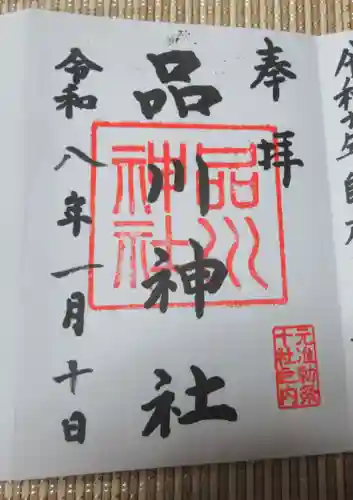 奉拝
品川神社
品川神社
元准勅祭
十社之内
令和八年一月十日